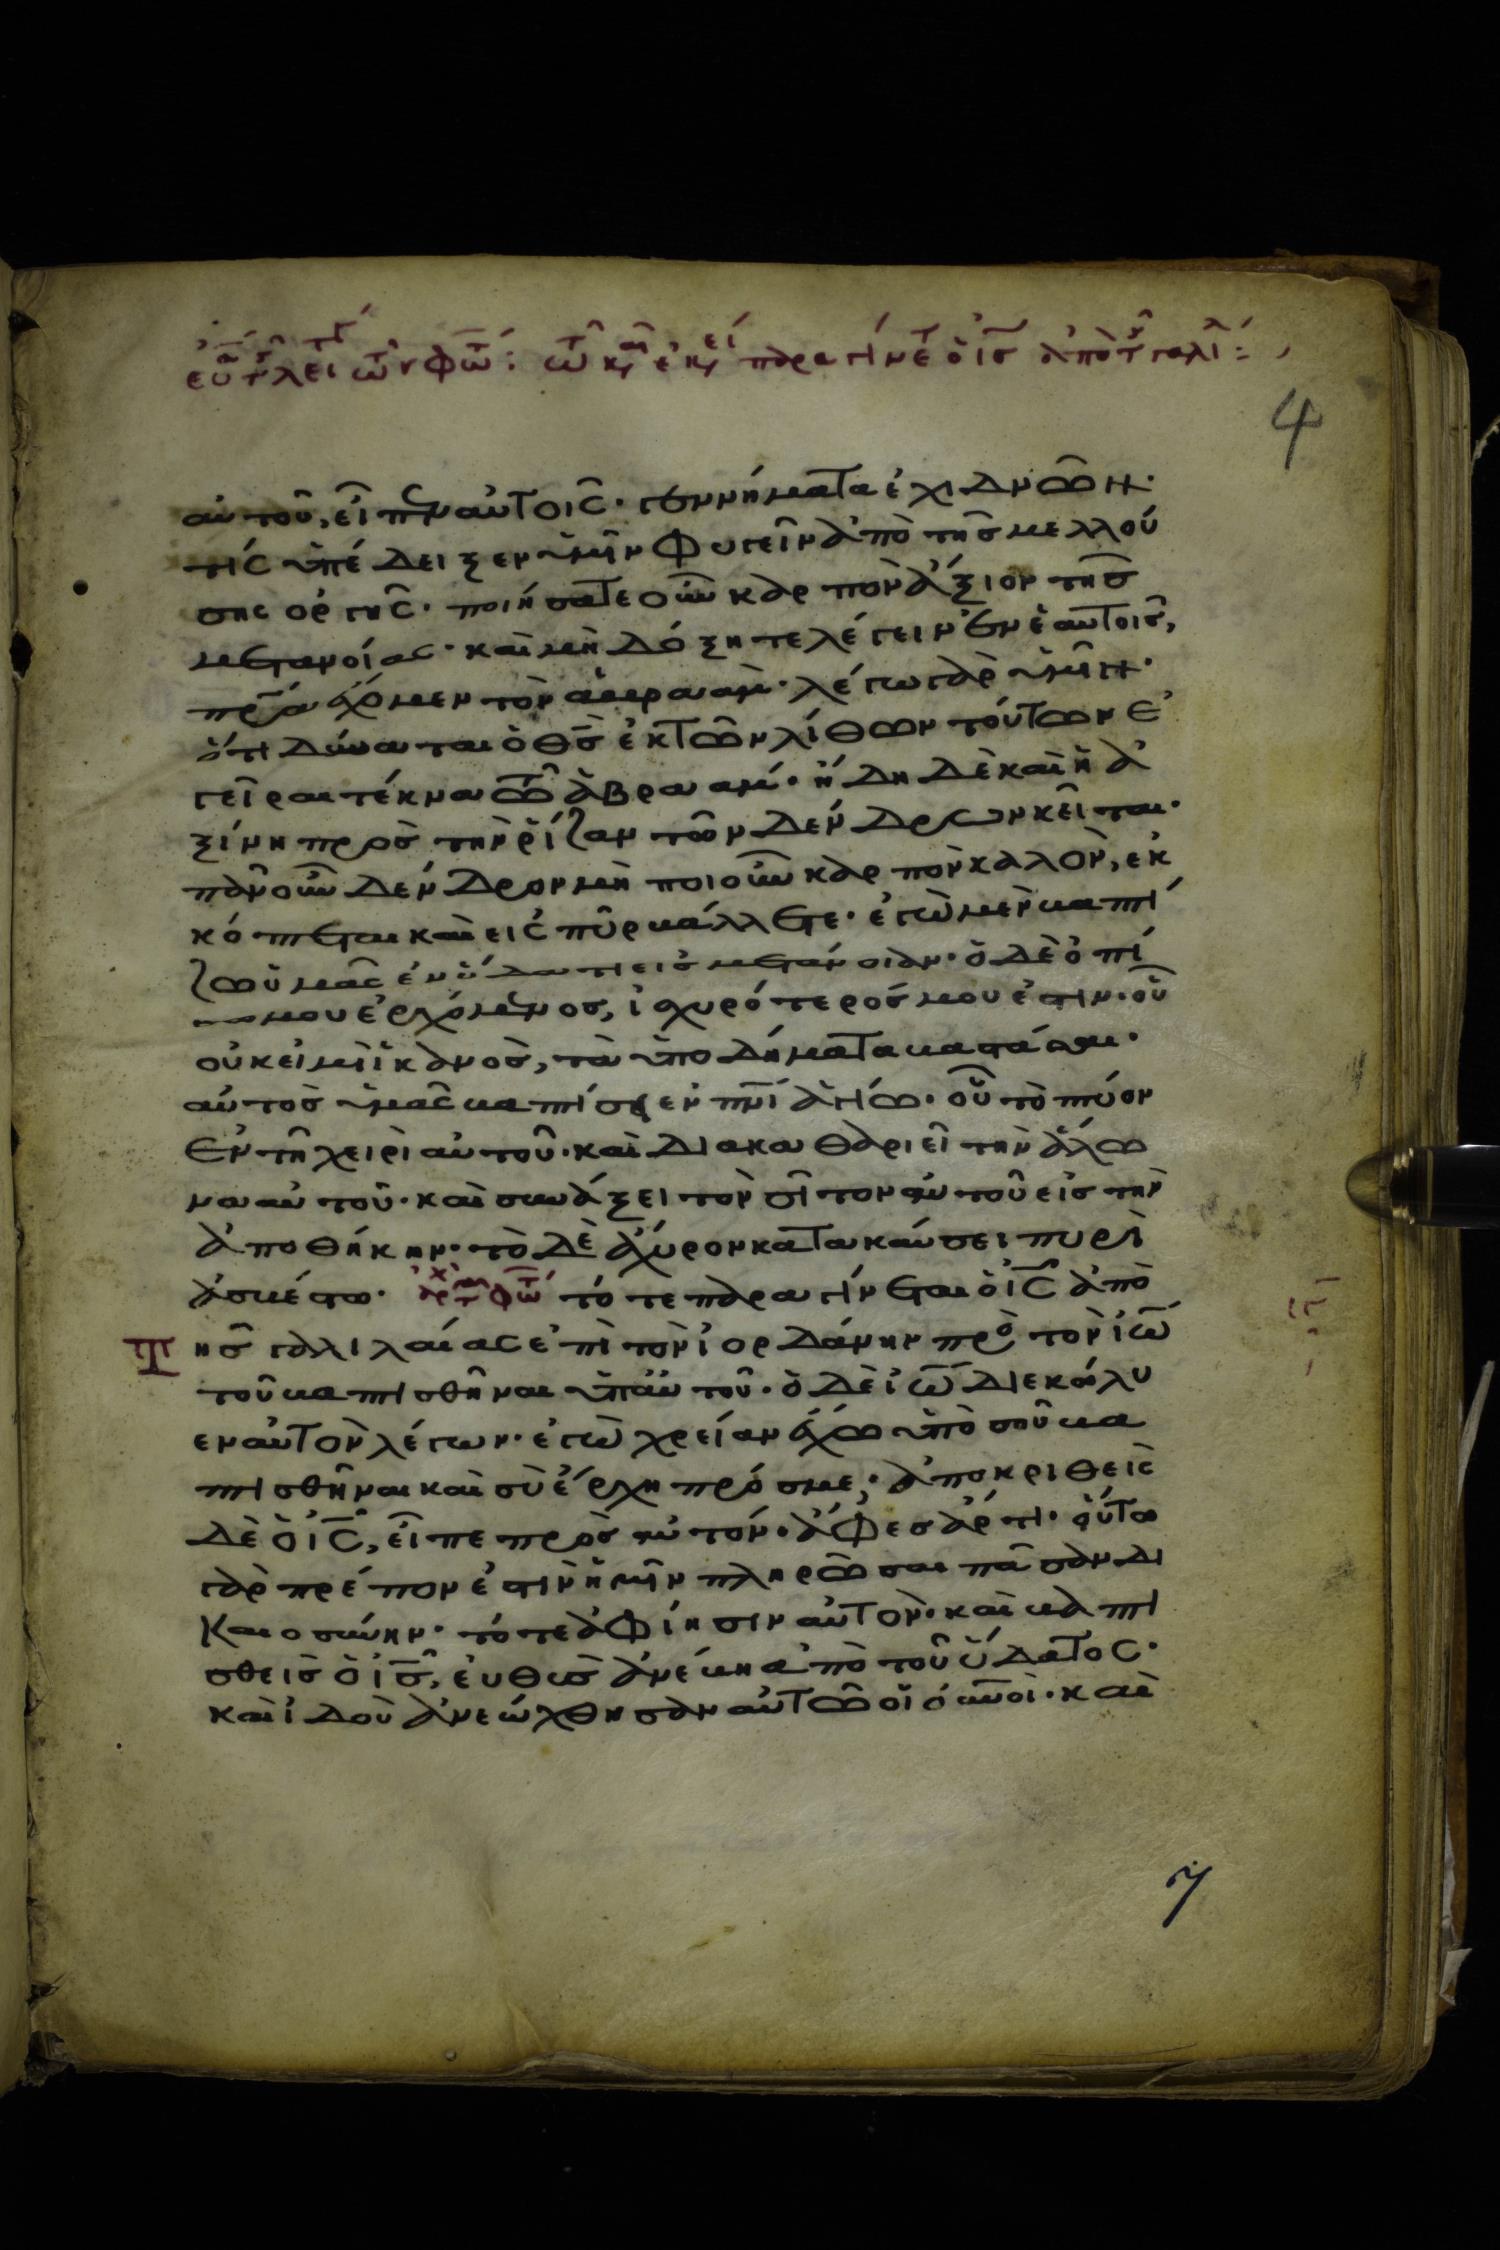 4
αὐτοῦ, εἶπεν αὐτοῖς· γεννήματα ἐχιδνῶν·
τίς ὑπέδειξεν ὑμῖν φυγεῖν ἀπὸ τῆς μελλού
σης ὀργῆς· ποιήσατε οὖν καρπὸν ἄξιον τῆς
μετανοίας· καὶ μὴ δόξητε λέγειν ἐν ἑαυτοῖς,
πρα ἔχομεν τὸν ἀβρααμ· λέγω γὰρ ὑμῖν·
ὅτι δύναται ὁ θς ἐκ τῶν λίθων τούτων ἐ
γεῖραι τέκνα τῶ ἀβρααμ· ἤδη δὲ καὶ ἡ ἀ
ξίνη πρὸς τὴν ῥίζαν τῶν δένδρων κεῖται·
πᾶν οὖν δένδρον μὴ ποιοῦν καρπὸν καλὸν, ἐκ
κόπτεται καὶ εἰς πῦρ βάλλεται· ἐγὼ μὲν βαπτί
ζω ὑμᾶς ἐν ὕδατι εἰς μετάνοιαν· ὁ δὲ ὀπί
σω μου ἐρχόμενος, ἰσχυρότερός μου ἐστιν· οὗ
οὐκ εἰμὶ ἱκανὸς, τὰ ὑποδήματα βαστάσαι·
αὐτὸς ὑμᾶς βαπτίσει ἐν πνι ἁγίω· οὗ τὸ πτύον
ἐν τῇ χειρὶ αὐτοῦ· καὶ διακαθαριεῖ τὴν ἅλω
να αὐτοῦ· καὶ συνάξει τὸν σῖτον αὐτοῦ εἰς τὴν
ἀποθήκην· τὸ δὲ ἄχυρον κατακαύσει πυρὶ
ἀσβέστω· τότε παραγίνεται ὁ ις ἀπὸ
Τ ης γαλιλαίας ἐπὶ τὸν ἰορδάνην πρὸ τὸν ἰω
τοῦ βαπτισθῆναι ὑπ' αὐτοῦ· ὁ δὲ ἰω διεκώλυ
εν αὐτὸν λέγων· ἐγὼ χρείαν ἔχω ὑπὸ σοῦ βα
πτισθῆναι καὶ σὺ ἔρχη πρός με; ἀποκριθεὶς
δὲ ὁ ις, εἶπε πρὸς αὐτόν· ἄφες ἄρτι· οὕτω
γὰρ πρέπον ἐστὶν ἡμῖν πληρῶσαι πᾶσαν δι
καιοσύνην· τότε ἀφίησιν αὐτόν· καὶ βαπτι
σθεὶς ὁ ις, εὐθὺς ἀνέβη ἀπὸ τοῦ ὕδατος·
καὶ ἰδοὺ ἀνεώχθησαν αὐτῶ οἱ οὐνοι· καὶ